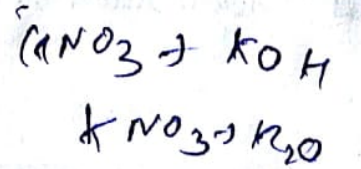 NO3 → KOH
KNO3 → K2O